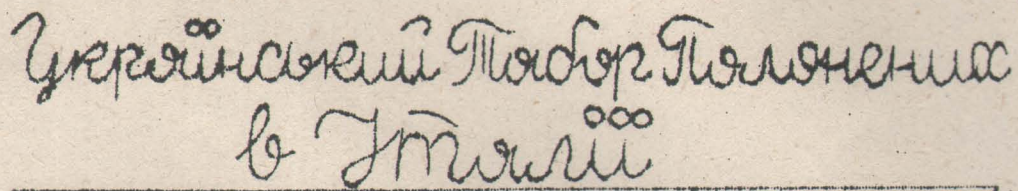 Український Табор Полонених
в Італії